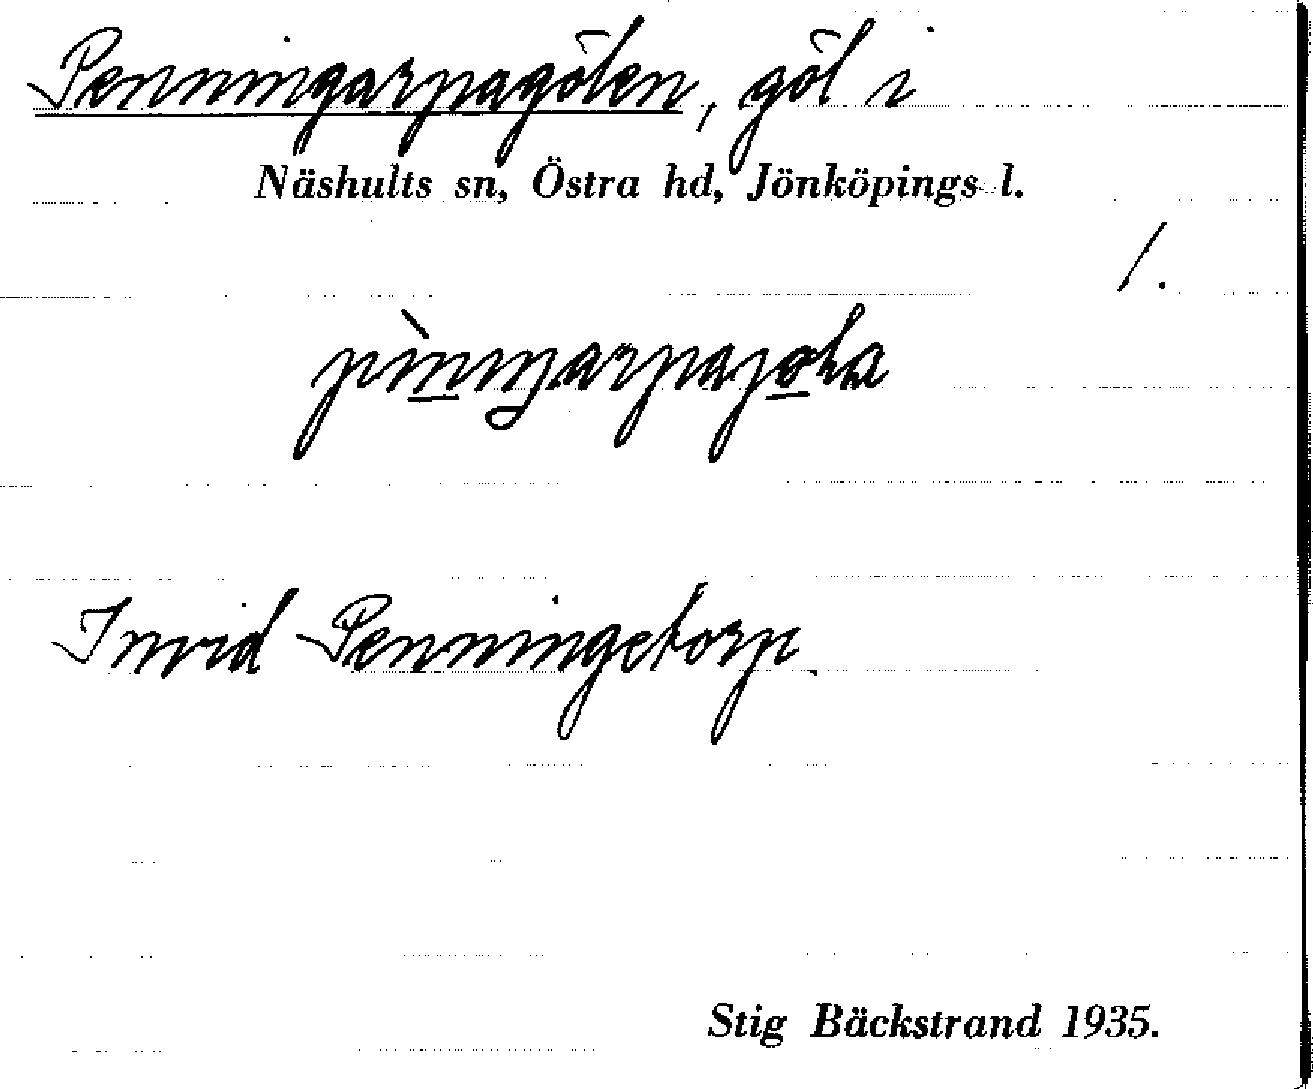 Penningarpagölen, göl i
Näshults sn, Östra hd, Jönköpings l.
1.
Invid Penningetorp.
Stig Bäckstrand 1935.